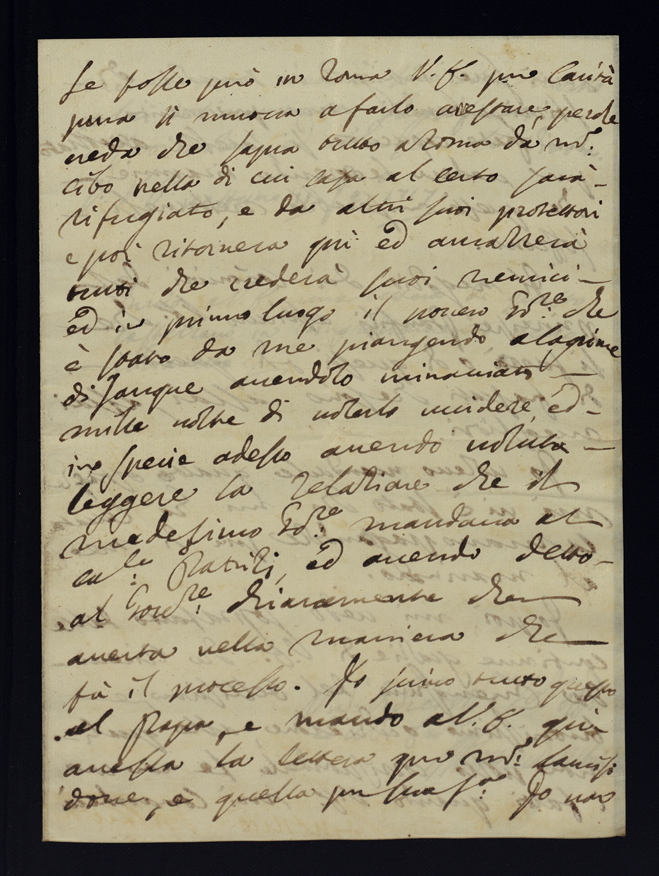 Se fosse però in Roma V.E. per Carità
pura si muova a farlo arestare, perche
veda che sapra tutto a Roma da M.r
Cibo nella di cui casa al certo sarà
rifugiato, e da altri suoi protettori
e poi ritornera quì ed amazzerà
tutti che crederà suoi nemici
ed in primo luogo il povero Go.re che
è stato da me piangendo a lagrime
di sangue avendolo minaciato
mille volte di volerlo uccidere, ed
in specie adesso avendo voluto
leggere la relazione che il
medesimo Go.re mandava al
Ca.le Patrizi, ed avendo detto
al Gov.re chiaramente che
averta nella maniera che
fà il processo. Io scrivo tutto questo
al Papa, e mando a V.E. quì
anessa la lettera per M.r
e quella per Sua S.a Io non